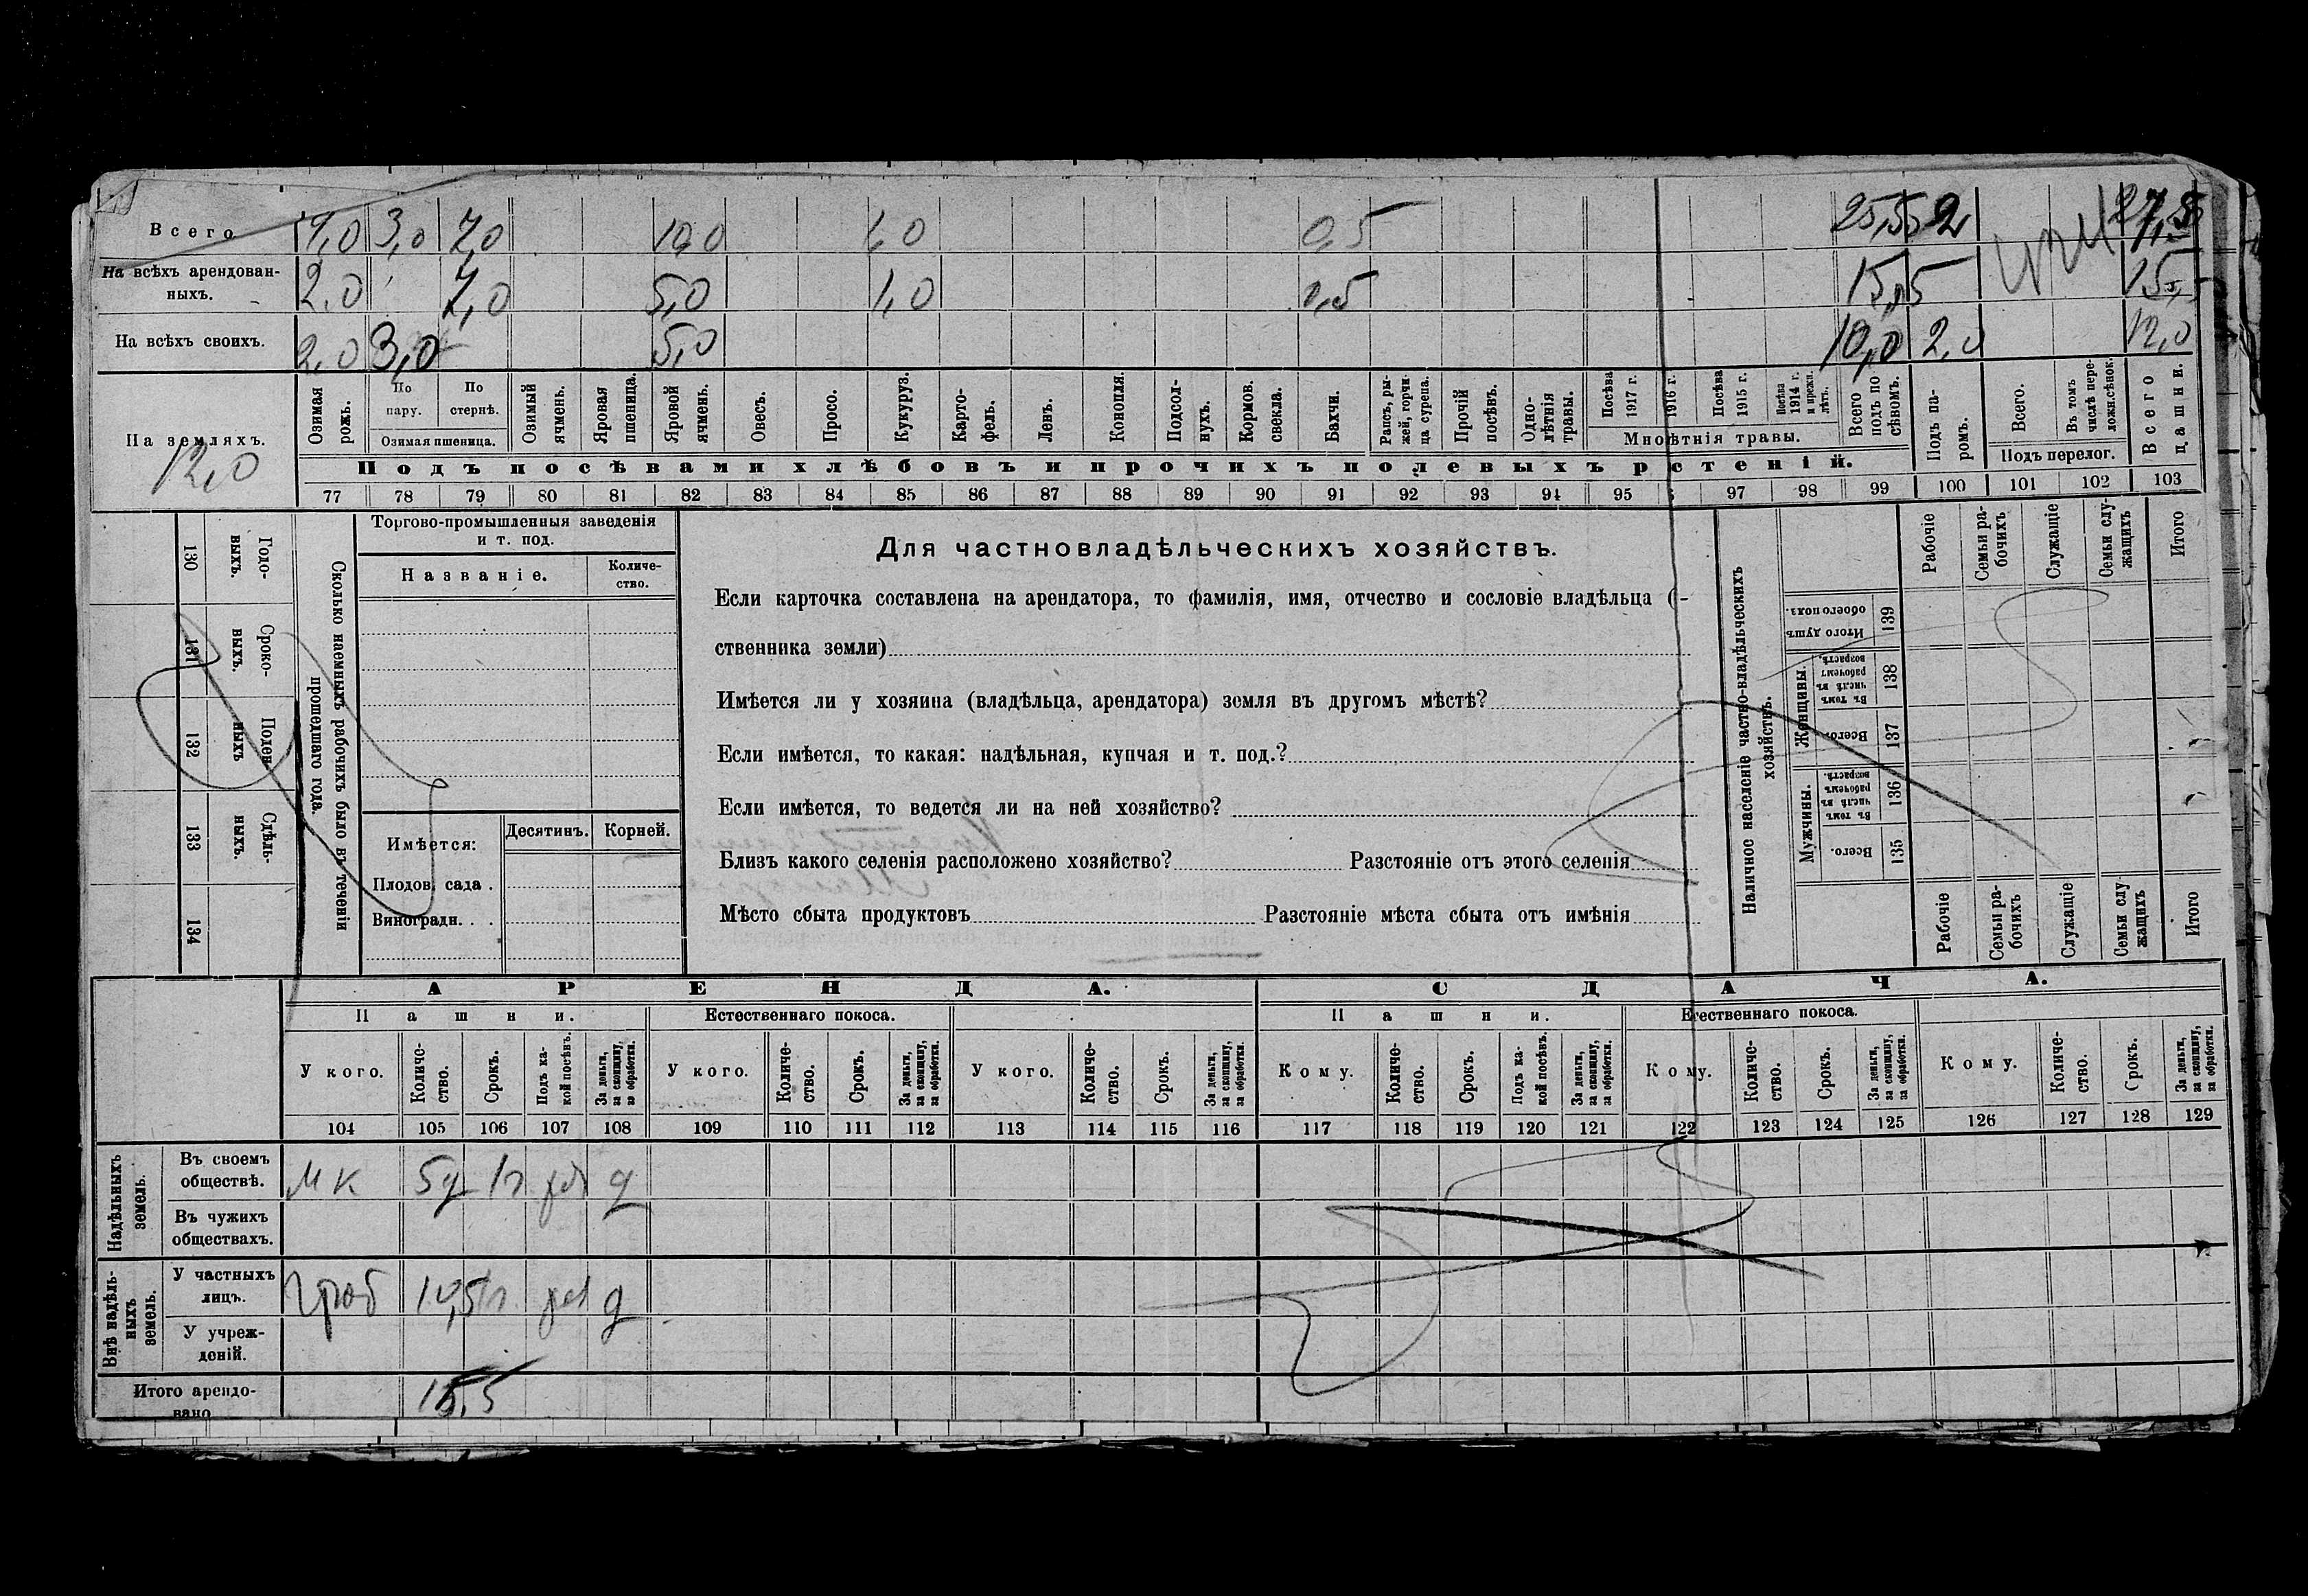 Всего 4,0 3,0 7,0 10,0 1,0 0,5 25,5 2 27,5
На всѣхъ арендован-
ныхъ. 2,0 7,0 5,0 1,0 0,5 15,5 15,5
На всѣхъ своихъ. 2,0 3,0 5,0 10,0 2,0 12,0
На земляхъ.
12,0
Озимая рожь.
По пару.
По стернѣ.
Озимая пшеница.
Озимый ячмень.
Яровая пшеница.
Яровой ячмень.
Овесъ.
Просо.
Кукуруз.
Карто-
фель.
Ленъ.
Конопля.
Подсол-
нухъ.
Кормов. свекла.
Бахчи.
Рапсъ, ры-
жей, горчи-
ца сурепа.
Прочій посѣвъ.
Одно-
лѣтнія травы.
Посѣва 1917 г.
1916 г.
Посѣва 1915 г.
Посѣва 1914 г. и прежн. лѣтъ.
Многѣтнія травы.
Всего подъ по
сѣвомъ.
Подъ па-
ромъ.
Всего.
Въ томъ числѣ пере-
ложн. сѣнок.
Подъ перелог.
Всего пашни.
Подъ посѣвами хлѣбовъ и прочихъ полевыхъ растеній.
77 78 79 80 81 82 83 84 85 86 87 88 89 90 91 92 93 94 95 97 98 99 100 101 102 103
130 Годо-
выхъ.
131 Сроко-
выхъ.
132 Поден-
ныхъ
133 Сдѣль-
ныхъ.
134
Сколько наемныхъ рабочихъ было въ теченіи
прошедшаго года.
Торгово-промышленныя заведенія
и т. под.
Названіе. Количе-
ство.
Имѣется: Десятинъ. Корней.
Плодов. сада .
Виноградн. . .
Для частновладѣльческихъ хозяйствъ.
Если карточка составлена на арендатора, то фамилія, имя, отчество и сословіе владѣльца (-
ственника земли)
Имѣется ли у хозяина (владѣльца, арендатора) земля въ другомъ мѣстѣ?
Если имѣется, то какая: надѣльная, купчая и т. под.?
Если имѣется, то ведется ли на ней хозяйство?
Близъ какого селенія расположено хозяйство? Разстояніе отъ этого селенія
Мѣсто сбыта продуктовъ Разстояніе мѣста сбыта отъ имѣнія
Наличное населеніе частно-владѣльческихъ
хозяйствъ.
Рабочіе
Семьи ра-
бочихъ
Служащіе
Семьи слу-
жащихъ
Итого
Итого душъ обоего пола. 139
Женщины.
Въ томъ числѣ въ рабочемъ возрастѣ. 138
Всего. 137
Мужчины.
Въ томъ числѣ въ рабочемъ возрастѣ. 136
Всего. 135
Рабочіе
Семьи ра-
бочихъ
Служащіе
Семьи слу
жащихъ
Итого
АРЕНДА. СДАЧА.
Пашни. Естественнаго покоса. Пашни. Естественнаго покоса.
У кого. Количе-
ство. Срокъ. Подъ ка-
кой посѣвъ. За деньги, за скопщину, за обработки.
У кого. Количе-
ство. Срокъ. За деньги, за скопщину, за обработки.
У кого. Количе-
ство. Срокъ. За деньги, за скопщину, за обработки.
Кому. Количе-
ство. Срокъ. Подъ ка-
кой посѣвъ. За деньги, за скопщину, за обработки.
Кому. Количе-
ство. Срокъ. За деньги, за скопщину, за обработки.
Кому. Количе-
ство. Срокъ. За деньги, за скопщину, за обработки.
104 105 106 107 108 109 110 111 112 113 114 115 116 117 118 119 120 121 122 123 124 125 126 127 128 129
Надѣльныхъ земель.
Въ своемъ
обществѣ. МК 5д 1г д
Въ чужихъ
обществахъ.
Внѣ надѣль-
ныхъ земель.
У частныхъ
лицъ. 10,5 1г д
У учреж-
деній.
Итого арендо-
вано 15,5